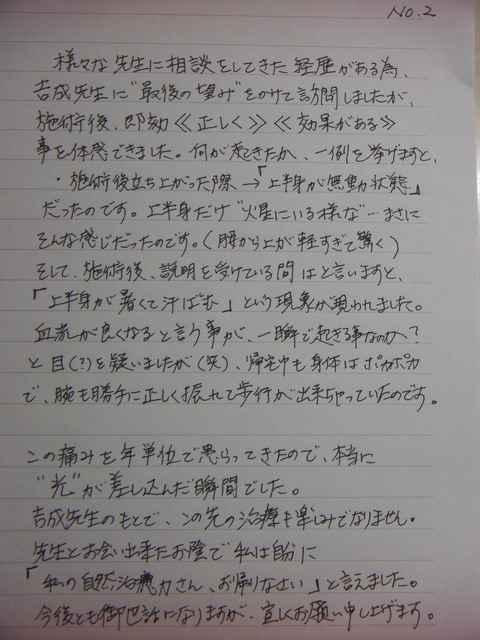 No.2
様々な先生に相談をしてきた経歴がある為、
吉成先生に"最後の望み"をかけて訪問しましたが、
施術後、即効≪正しく≫≪効果がある≫
事を体感できました。何が起きたか、一例を挙げますと、
・施術後立ち上がった際→「上半身が無動状態」
だったのです。上半身だけ"火星にいる様な"…まさに
そんな感じだったのです。(腰から上が軽すぎて驚く)
そして、施術後、説明を受けている間はと言いますと、
「上半身が暑くて汗ばむ」という現象が現われました。
血流が良くなると言う事が、一瞬で起きる事なのか?
と目(?)を疑いましたが(笑)、帰宅中も身体はポカポカ
で、腕も勝手に正しく振れて歩行が出来ちゃっていたのです。
この痛みを年単位で患らってきたので、本当に
"光"が差し込んだ瞬間でした。
吉成先生のもとで、この先の治療も楽しみでなりません。
先生とお会い出来たお陰で私は自分に
「私の自然治癒力さん、お帰りなさい」と言えました。
今後とも御世話になりますが、宜しくお願い申し上げます。